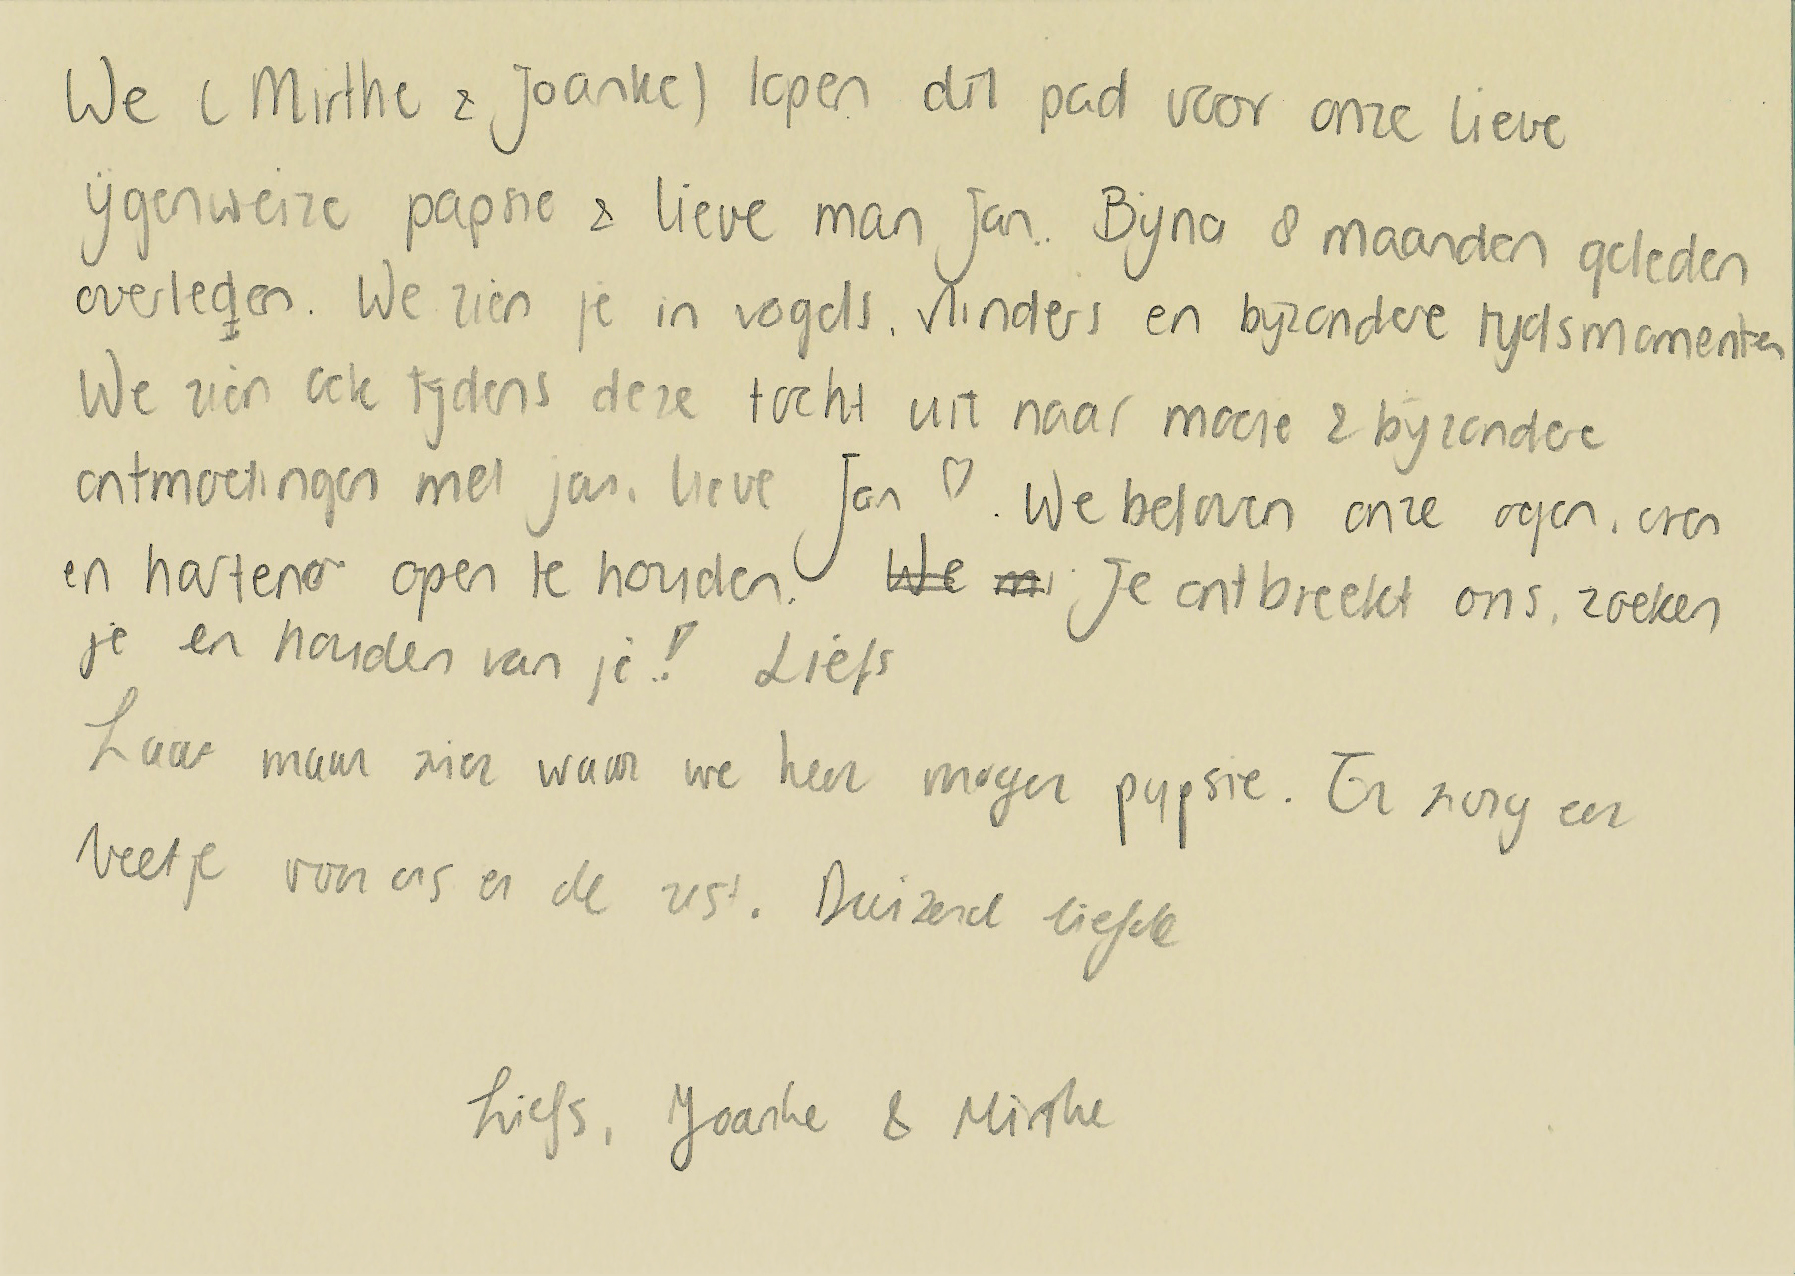 We (Mirthe & Joanke) lopen dit pad voor onze lieve
ijgenweize papsie & lieve man Jan. Bijna 8 maanden geleden
overleden. We zien je in vogels, vlinders en bijzondere tijdsmomenten
We zien ook tijdens deze tocht uit naar mooie & bijzondere
ontmoetingen met jou, lieve Jan ♡. We beloven onze ogen, oren
en harten open te houden. Je ontbreekt ons, zoeken
je en houden van je! Liefs
Laat maar zien waar we heen mogen papsie. En zorg een
beetje voor ons en de rest. Duizend liefde
Liefs, Joanke & Mirthe